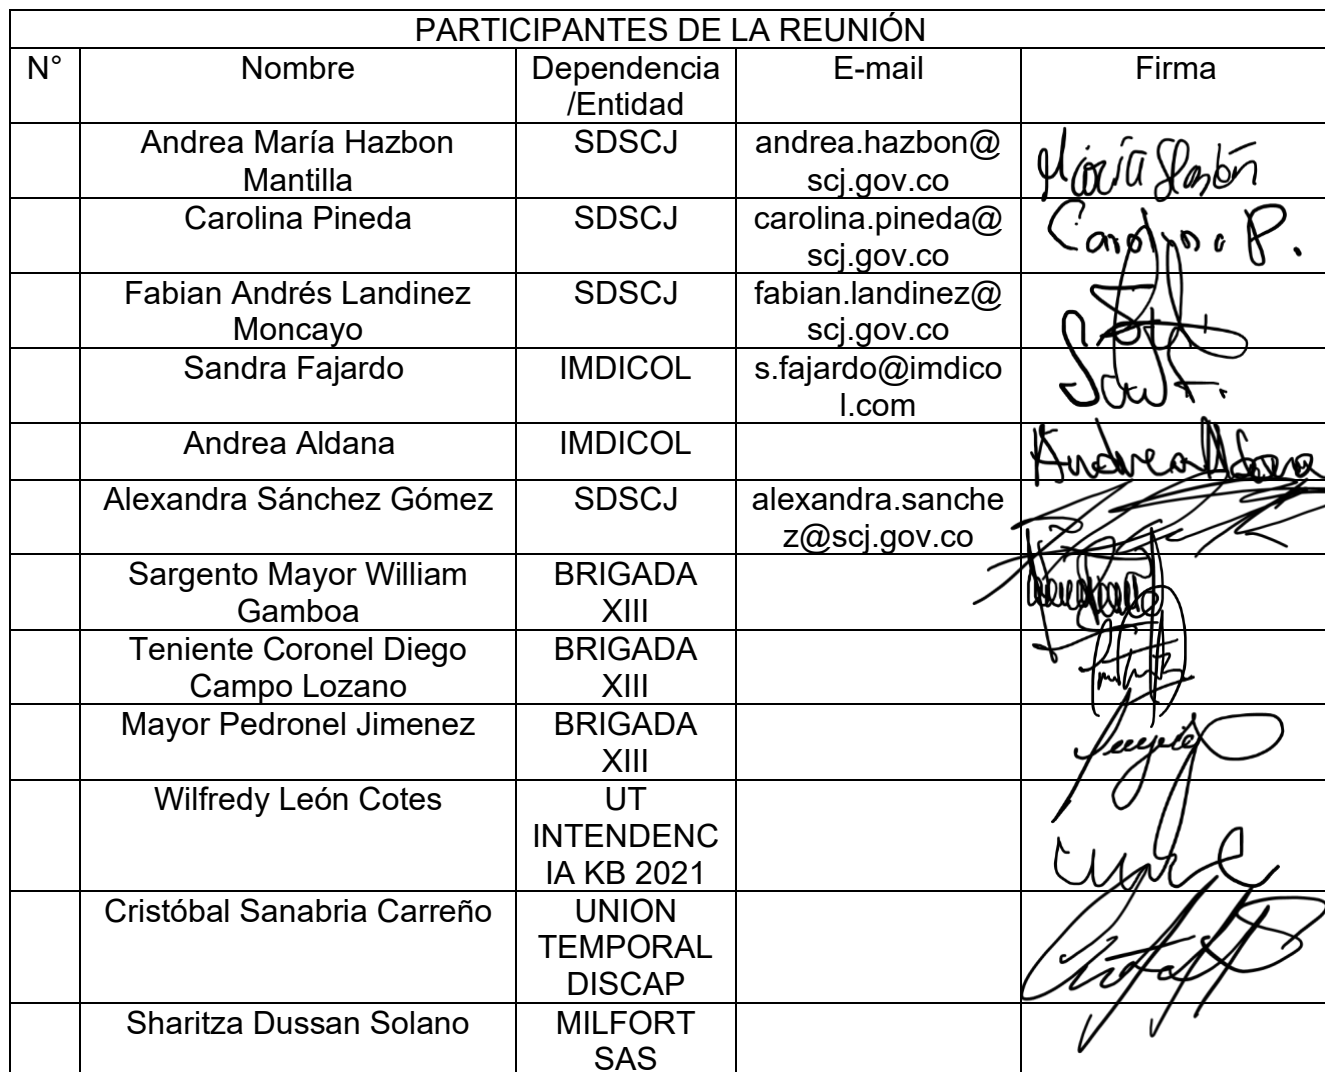 PARTICIPANTES DE LA REUNIÓN
N° Nombre Dependencia E-mail Firma
/Entidad
Andrea María Hazbon SDSCJ andrea.hazbon@
Mantilla scj.gov.co
María Hazbón
Carolina Pineda SDSCJ carolina.pineda@ Carolina P.
scj.gov.co
Fabian Andrés Landinez SDSCJ fabian.landinez@
Moncayo scj.gov.co
Sandra Fajardo IMDICOL s.fajardo@imdico
l.com
Andrea Aldana IMDICOL Andrea Aldana
Alexandra Sánchez Gómez SDSCJ alexandra.sanche
z@scj.gov.co
Sargento Mayor William BRIGADA
Gamboa XIII
Teniente Coronel Diego BRIGADA
Campo Lozano XIII
Mayor Pedronel Jimenez BRIGADA
XIII
Wilfredy León Cotes UT
INTENDENC
IA KB 2021
Cristóbal Sanabria Carreño UNION
TEMPORAL
DISCAP
Sharitza Dussan Solano MILFORT
SAS